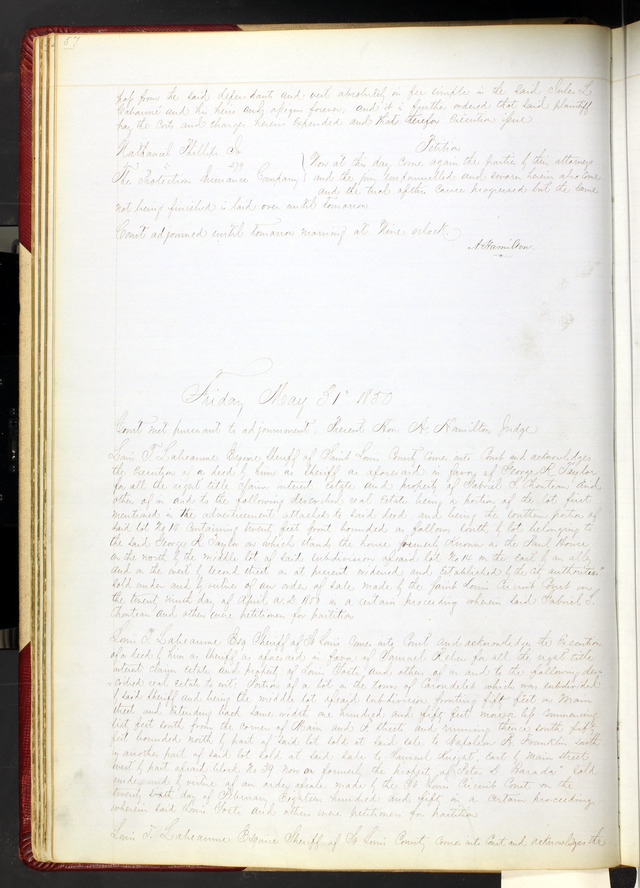 87
from the said defendants and vest absolutely in fee simple in the said Jules L
Cabanné and his heirs and assigns forever, and it is further ordered that said plaintiff
pay the costs and charges herein expended and that therefor Execution issue
Petition
Nathaniel Phillips
vs 279
The Protection Insurance Company
Now at this day come again the parties by their attorneys
and the jury empannelled and sworn herein also come
and the trial of this cause progressed but the same
not being finished is laid over until tomorrow
Court adjourned until tomorrow morning at Nine oclock
A Hamilton
Friday May 31st 1850
Court met pursuant to adjournment, Present Hon A. Hamilton Judge
Louis T Labeaume Esquire Sheriff of Saint Louis County Come into Court and acknowledges
the Execution of a deed by him as Sheriff as aforesaid in favor of George R Taylor
for all the right title claim interest Estate and property of Gabriel S. Chouteau and
others of in and to the following described real Estate being a portion of the lot first
mentioned in the advertisement attached to said deed and being the southern portion of
said lot No 10 Containing twenty feet front bounded as follows South by lot belonging to
the said George R Taylor on which stands the house formerly known as the
on the north by the middle lot of said subdivision of said lot No 10 on the east by an alley
and on the west by second street as at present widened and Established by the City authorities
sold under and by virtue of an order of sale made by the Saint Louis Circuit Court on
the twenty ninth day of April A.D. 1850 in a certain proceeding wherein said Gabriel S.
Chouteau and others were petitioners for partition
Louis T. Labeaume Esq Sheriff of St Louis Come into Court and acknowledges the Execution
of a deed by him as Sheriff as aforesaid in favor of Samuel for all the right title
interest claim estate and property of Louis and others of in and to the following des-
cribed real estate to wit: Portion of a lot in the town of Carondelet which was subdivided
by said Sheriff and being the middle lot of said subdivision fronting fifty feet on Main
street and Extending back same width one hundred and fifty feet more or less Commencing
feet south from the corner of Main and streets and running thence south fifty
feet bounded north by part of said lot sold at said sale to Napoleon B. Franklin south
by another part of said lot sold at said sale to Samuel east by Main street
west by part of said block No 39 now or formerly the property of Peter L Sold
under and by virtue of an order of sale made by the St Louis Circuit Court on the
twenty sixth day of February Eighteen hundred and fifty in a certain proceeding
wherein said Louis and others were petitioners for partition
Louis T. Labeaume Esquire Sheriff of St Louis County comes into Court and acknowledges the